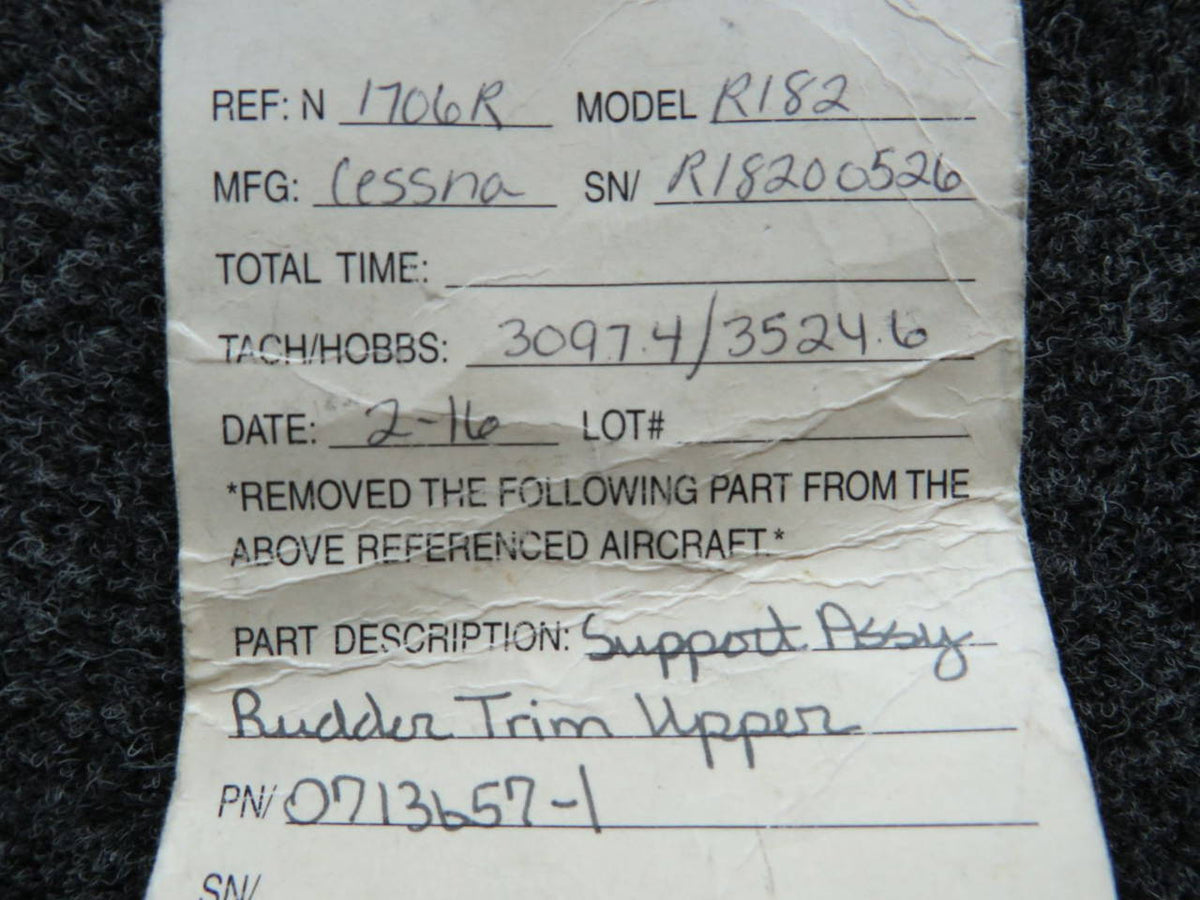 REF: N 1706R MODEL R182
MFG: Cessna SN/ R18200526
TOTAL TIME:
TACH/HOBBS: 3097.4/3524.6
DATE: 2-16 LOT#
*REMOVED THE FOLLOWING PART FROM THE
ABOVE REFERENCED AIRCRAFT.*
PART DESCRIPTION: Support Assy
Rudder Trim Upper
PN/ 0713657-1
SN/